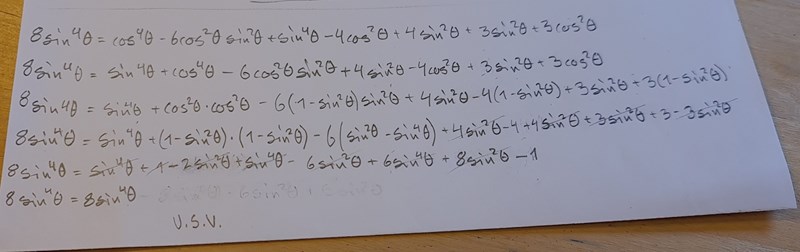 8sin⁴θ = cos⁴θ - 6cos²θ sin²θ + sin⁴θ - 4cos²θ + 4sin²θ + 3sin²θ + 3cos²θ
8sin⁴θ = sin⁴θ + cos⁴θ - 6cos²θ sin²θ + 4sin²θ - 4cos²θ + 3sin²θ + 3cos²θ
8sin⁴θ = sin⁴θ + cos²θ · cos²θ - 6(1-sin²θ)sin²θ + 4sin²θ - 4(1-sin²θ) + 3sin²θ + 3(1-sin²θ)
8sin⁴θ = sin⁴θ + (1-sin²θ) · (1-sin²θ) - 6(sin²θ - sin⁴θ) + 4sin²θ - 4 + 4sin²θ + 3sin²θ + 3 - 3sin²θ
8sin⁴θ = sin⁴θ + 1 - 2sin²θ + sin⁴θ - 6sin²θ + 6sin⁴θ + 8sin²θ - 1
8sin⁴θ = 8sin⁴θ
V.S.V.